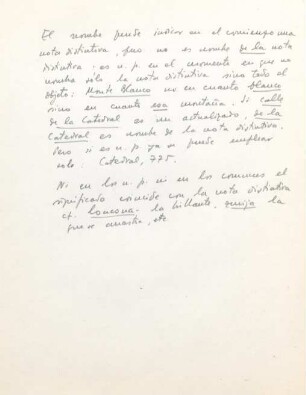 El nombre puede indicar en el comienzo una
nota distintiva, pero no es nombre de la nota
distintiva: es n. p. en el momento en que no
nombra sólo la nota distintiva sino todo el
objeto: Monte Blanco no en cuanto blanco
sino en cuanto esa montaña. Si calle
de la Catedral es un actualizado, de la
Catedral es nombre de la nota distintiva.
Pero si es n. p. ya se puede emplear
solo: Catedral, 775.
Ni en los n. p. ni en los comunes el
significado coincide con la nota distintiva
cf. la brillante, la
que se, etc.